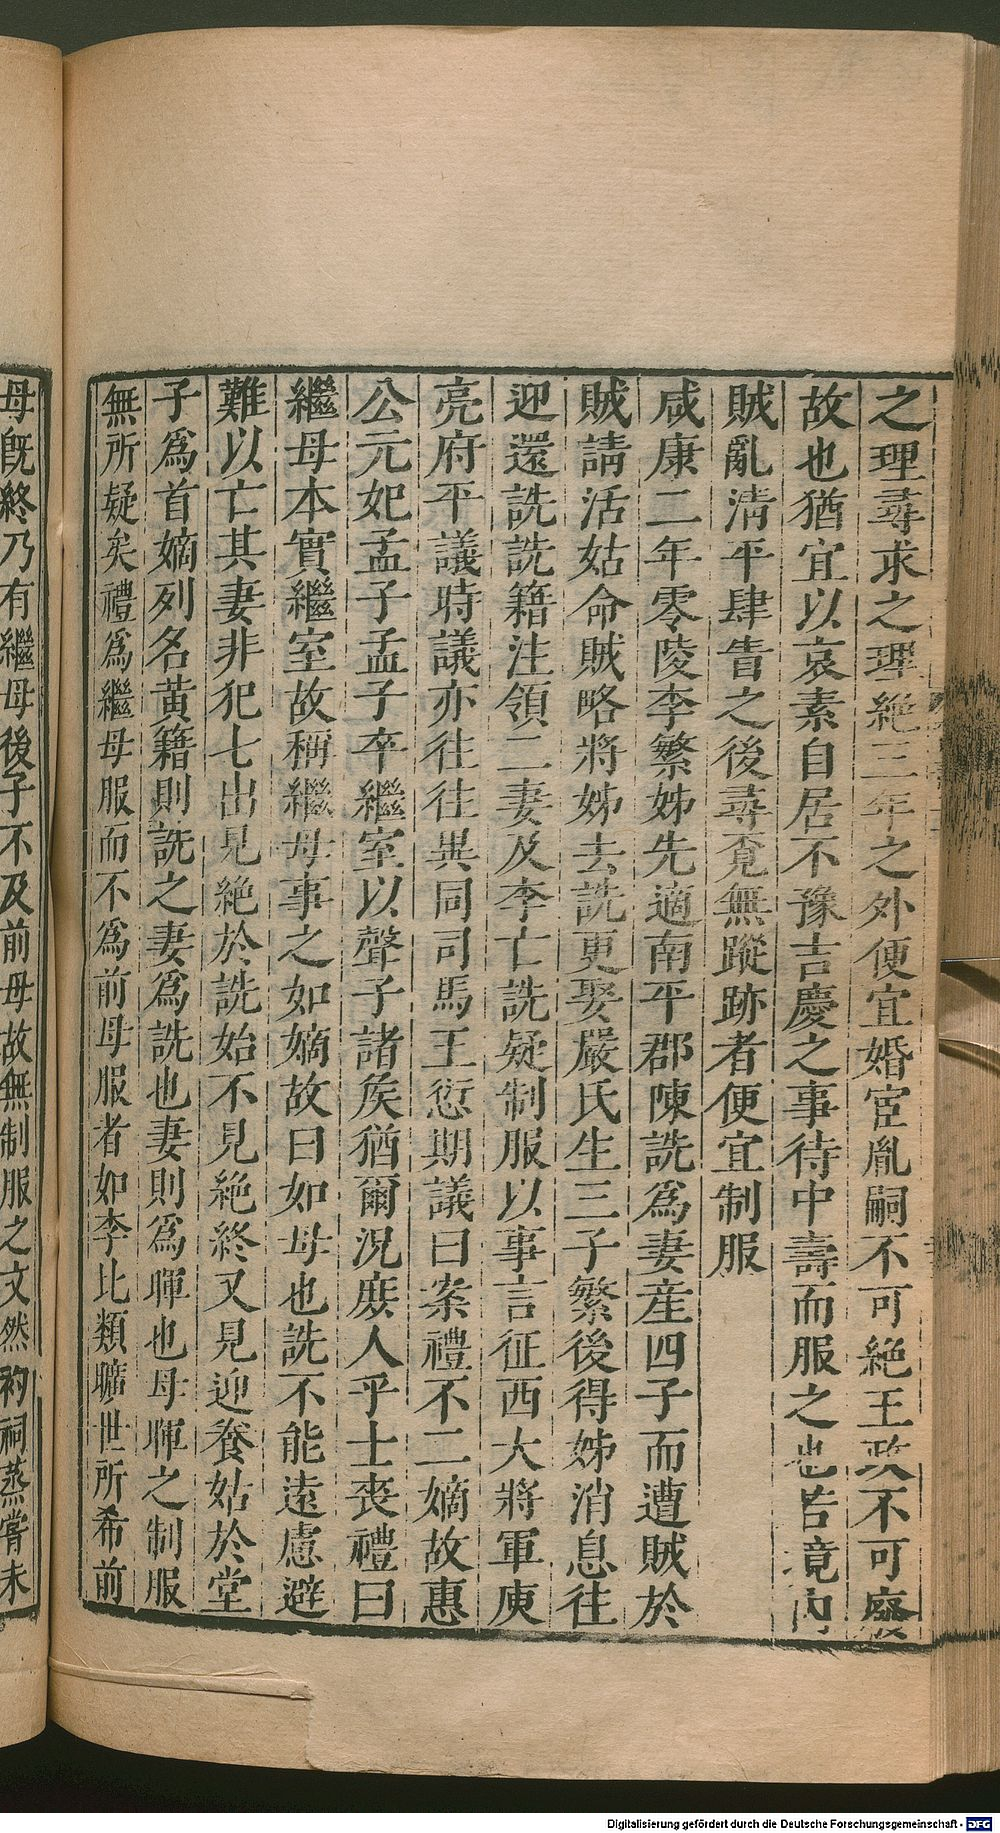 之理尋求之理絶三年之外便宜婚宦胤嗣不可絶王政不可廢
故也猶宜以哀素自居不豫吉慶之事待中壽而服之也若境內
賊亂淸平肆眚之後尋覔無蹤跡者便宜制服
咸康二年零陵李繁姊先適南平郡陳詵爲妻産四子而遭賊於
賊請活姑命賊略將姊去詵更娶嚴氏生三子繁後得姊消息往
迎還詵詵籍注領二妻及李亡詵疑制服以事言征西大將軍庾
亮府平議時議亦往往異同司馬王愆期議曰案禮不二嫡故惠
公元妃孟子孟子卒繼室以聲子諸矦猶爾況庶人乎士喪禮曰
繼母本實繼室故稱繼母事之如嫡故曰如母也詵不能遠慮避
難以亡其妻非犯七出見絶於詵始不見絶終又見迎養姑於堂
子爲首嫡列名黄籍則詵之妻爲詵也妻則爲暉也母暉之制服
無所疑矣禮爲繼母服而不爲前母服者如李比類曠世所希前
母旣終乃有繼母後子不及前母故無制服之文然礿祠蒸嘗未
Digitalisierung gefördert durch die Deutsche Forschungsgemeinschaft - DFG